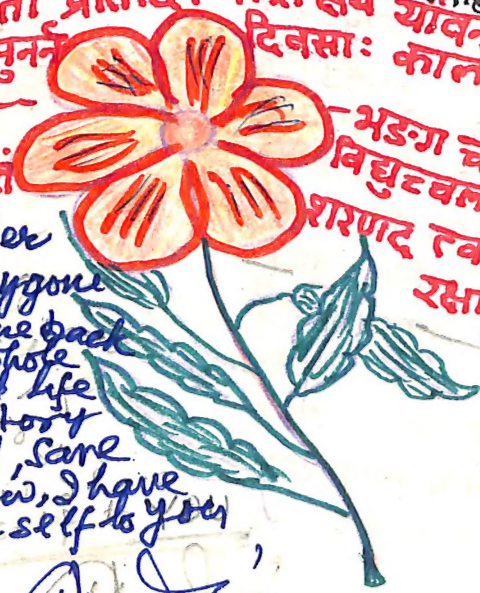 क्षय यौवन
नुनर्न दिवसाः काल
भङग च
विद्युच्चल
शरणद त्व
रक्षा
er
ygone
me back
hole
life
tory
, save
w, I have
self to you